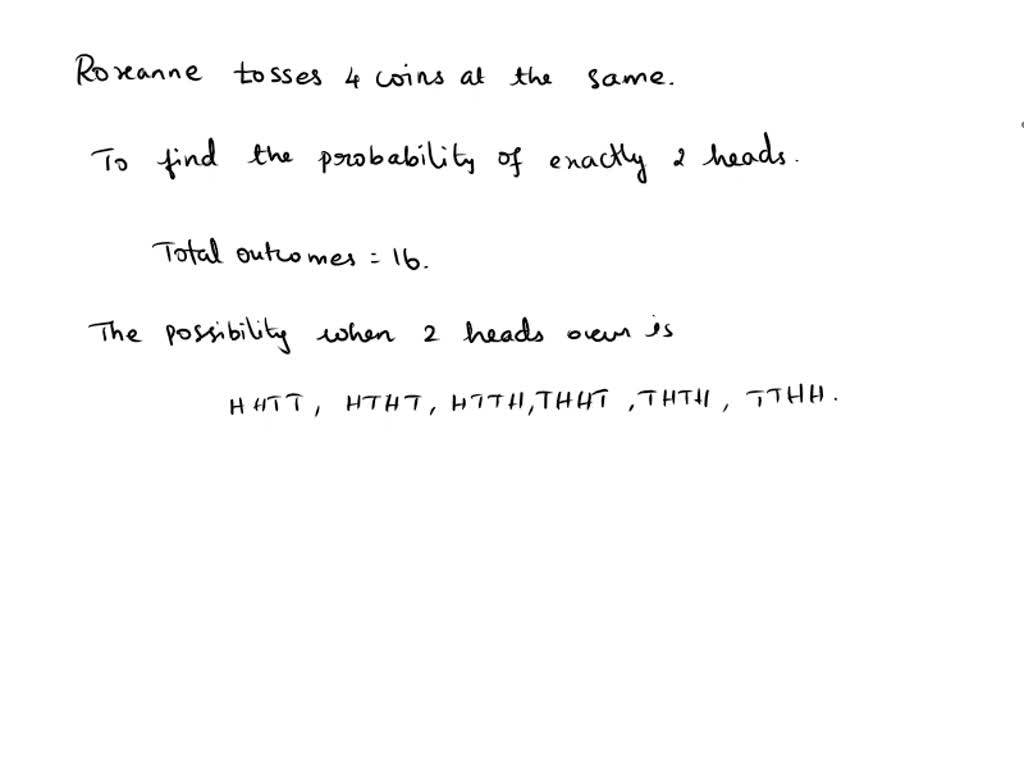 Roxeanne tosses 4 coins at the same.
To find the probability of exactly 2 heads.
Total outcomes = 16.
The possibility when 2 heads occur is
HHTT, HTHT, HTTH, THHT, THTH, TTHH.